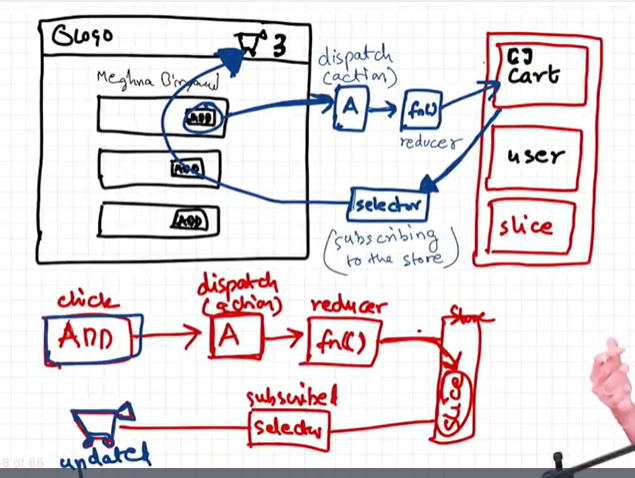 LOGO
3
Meghna Biryani
ADD
ADD
ADD
dispatch
(action)
A
fn()
reducer
selector
(subscribing
to the store)
cart
user
slice
click
ADD
dispatch
(action)
A
reducer
fn()
Store
slice
subscribed
selector
updated
of 86